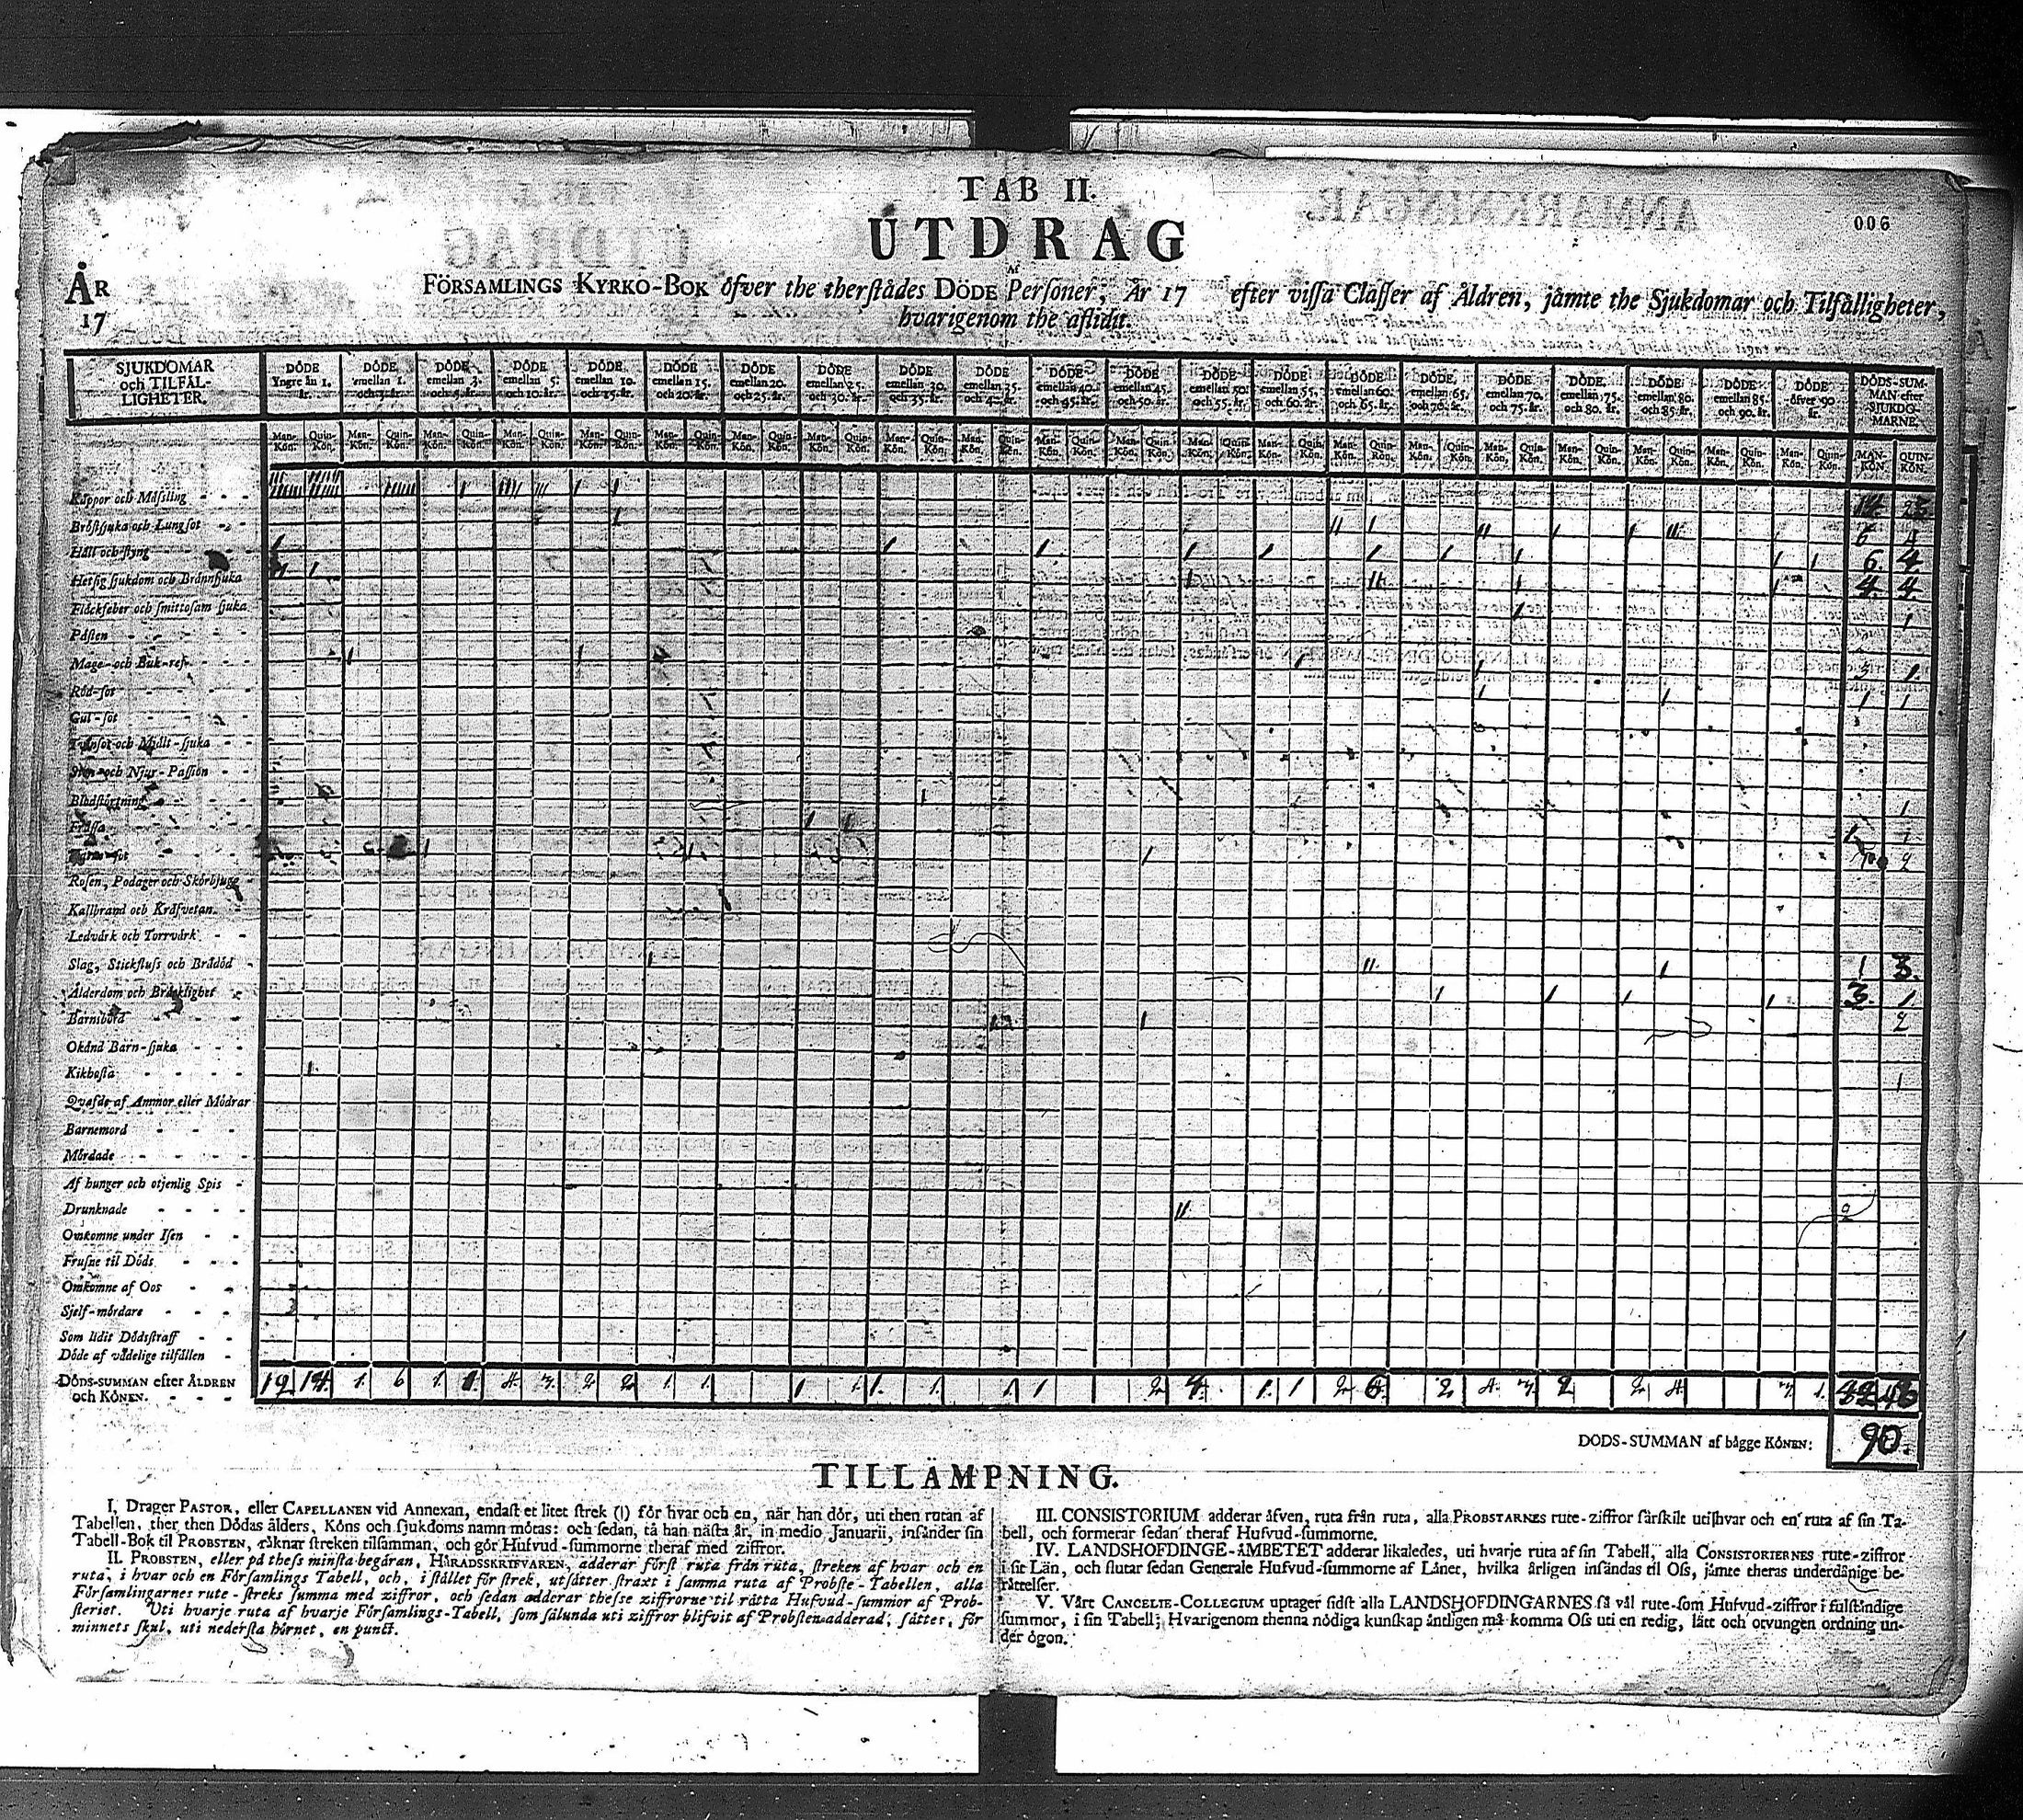 TAB II.
UTDRAG
006
ÅR
17
AF
FÖRSAMLINGS KYRKO-BOK öfver the therstädes DÖDE Personer, År 17 efter vissa Classer af Åldren, jämte the Sjukdomar och Tilfälligheter,
hvarigenom the aflidit.
SJUKDOMAR
och TILFÄL-
LIGHETER.
DÖDE Yngre än 1. år.
DÖDE, emellan 1. och 3. år.
DÖDE, emellan 3. och 5. år.
DÖDE, emellan 5. och 10. år.
DÖDE, emellan 10. och 15. år.
DÖDE emellan 15. och 20. år.
DÖDE emellan 20. och 25. år.
DÖDE emellan 25. och 30. år.
DÖDE emellan 30. och 35. år.
DÖDE emellan 35. och 40. år.
DÖDE emellan 40. och 45. år.
DÖDE emellan 45. och 50. år.
DÖDE emellan 50. och 55. år.
DÖDE emellan 55. och 60. år.
DÖDE emellan 60. och 65. år.
DÖDE, emellan 65. och 70. år.
DÖDE emellan 70. och 75. år.
DÖDE, emellan 75. och 80. år.
DÖDE emellan 80. och 85. år.
DÖDE emellan 85. och 90. år.
DÖDE öfver 90 år.
DÖDS-SUMMAN efter SJUKDOMARNE.
Man-Kön. Quin-Kön. Man-Kön. Quin-Kön. Man-Kön. Quin-Kön. Man-Kön. Quin-Kön. Man-Kön. Quin-Kön. Man-Kön. Quin-Kön. Man-Kön. Quin-Kön. Man-Kön. Quin-Kön. Man-Kön. Quin-Kön. Man-Kön. Quin-Kön. Man-Kön. Quin-Kön. Man-Kön. Quin-Kön. Man-Kön. Quin-Kön. Man-Kön. Quin-Kön. Man-Kön. Quin-Kön. Man-Kön. Quin-Kön. Man-Kön. Quin-Kön. Man-Kön. Quin-Kön. Man-Kön. Quin-Kön. Man-Kön. Quin-Kön. Man-Kön. Quin-Kön. MAN-KÖN. QUIN-KÖN.
Koppor och Mässling
Bröstsjuka och Lungsot 6 4
Håll och styng 6. 4
Hetsig sjukdom och Brännsjuka 4. 4
Fläckfeber och smittosam sjuka 1
Pästen
Mage- och Buk-ref 1.
Röd-sot 1 1
Gul-sot
Tvinsot och Mjält-sjuka
Sten- och Njur-Passion
Blodstörtning 1
Frässa 1
2
Rosen, Podager och Skörbjugg
Kallbrand och Kräfvetan.
Ledvärk och Torrvärk
Slag, Stickfluss och Brådöd 1 3.
Ålderdom och Bräcklighet 3. 1
Barnsbörd 2
Okänd Barn-sjuka
Kikhosta 1
Qvafde af Ammor eller Mödrar
Barnemord
Mördade
Af hunger och otjenlig Spis
Drunknade 2
Omkomne under Isen
Frusne til Döds
Omkomne af Oos
Sjelf-mördare
Som lidit Dödsstraff
Döde af vådelige tilfällen
DÖDS-SUMMAN efter ÅLDREN
och KÖNEN. 12 14. 1. 6 1. 1 4. 3. 2 2 1. 1. 1 1. 1. 1. 1 1 2 4. 1. 1 2 6. 2 4. 3. 2 2 4. 3. 1.
DÖDS-SUMMAN af bägge KÖNEN: 90.
TILLÄMPNING.
I. Drager PASTOR, eller CAPELLANEN vid Annexan, endast et litet strek (|) för hvar och en, när han dör, uti then rutan af
Tabellen, ther then Dödas ålders, Köns och sjukdoms namn mötas: och sedan, tå han nästa år, in medio Januarii, insänder sin
Tabell-Bok til PROBSTEN, räknar streken tilsamman, och gör Hufvud-summorne theraf med ziffror.
II. PROBSTEN, eller på thess minsta begäran, HÄRADSSKRIFVAREN, adderar först ruta från ruta, streken af hvar och en
ruta, i hvar och en Församlings Tabell, och, i stället för strek, utsätter straxt i samma ruta af Probste-Tabellen, alla
Församlingarnes rute-streks summa med ziffror, och sedan adderar thesse ziffrorne til rätta Hufvud-summor af Prob-
steriet. Uti hvarje ruta af hvarje Församlings-Tabell, som sålunda uti ziffror blifvit af Probsten adderad, sättes, för
minnets skul, uti nedersta hörnet, en punct.
III. CONSISTORIUM adderar äfven, ruta från ruta, alla PROBSTARNES rute-ziffror särskilt uti hvar och en ruta af sin Ta-
bell, och formerar sedan theraf Hufvud-summorne.
IV. LANDSHÖFDINGE-ÄMBETET adderar likaledes, uti hvarje ruta af sin Tabell, alla CONSISTORIERNES rute-ziffror
i sit Län, och slutar sedan Generale Hufvud-summorne af Länet, hvilka årligen insändas til Oss, jämte theras underdånige be-
rättelser.
V. Vårt CANCELIE-COLLEGIUM uptager sidst alla LANDSHÖFDINGARNES så väl rute-som Hufvud-ziffror i fulständige
summor, i sin Tabell; Hvarigenom thenna nödiga kunskap ändteligen må komma Oss uti en redig, lätt och otvungen ordning un-
der ögon.